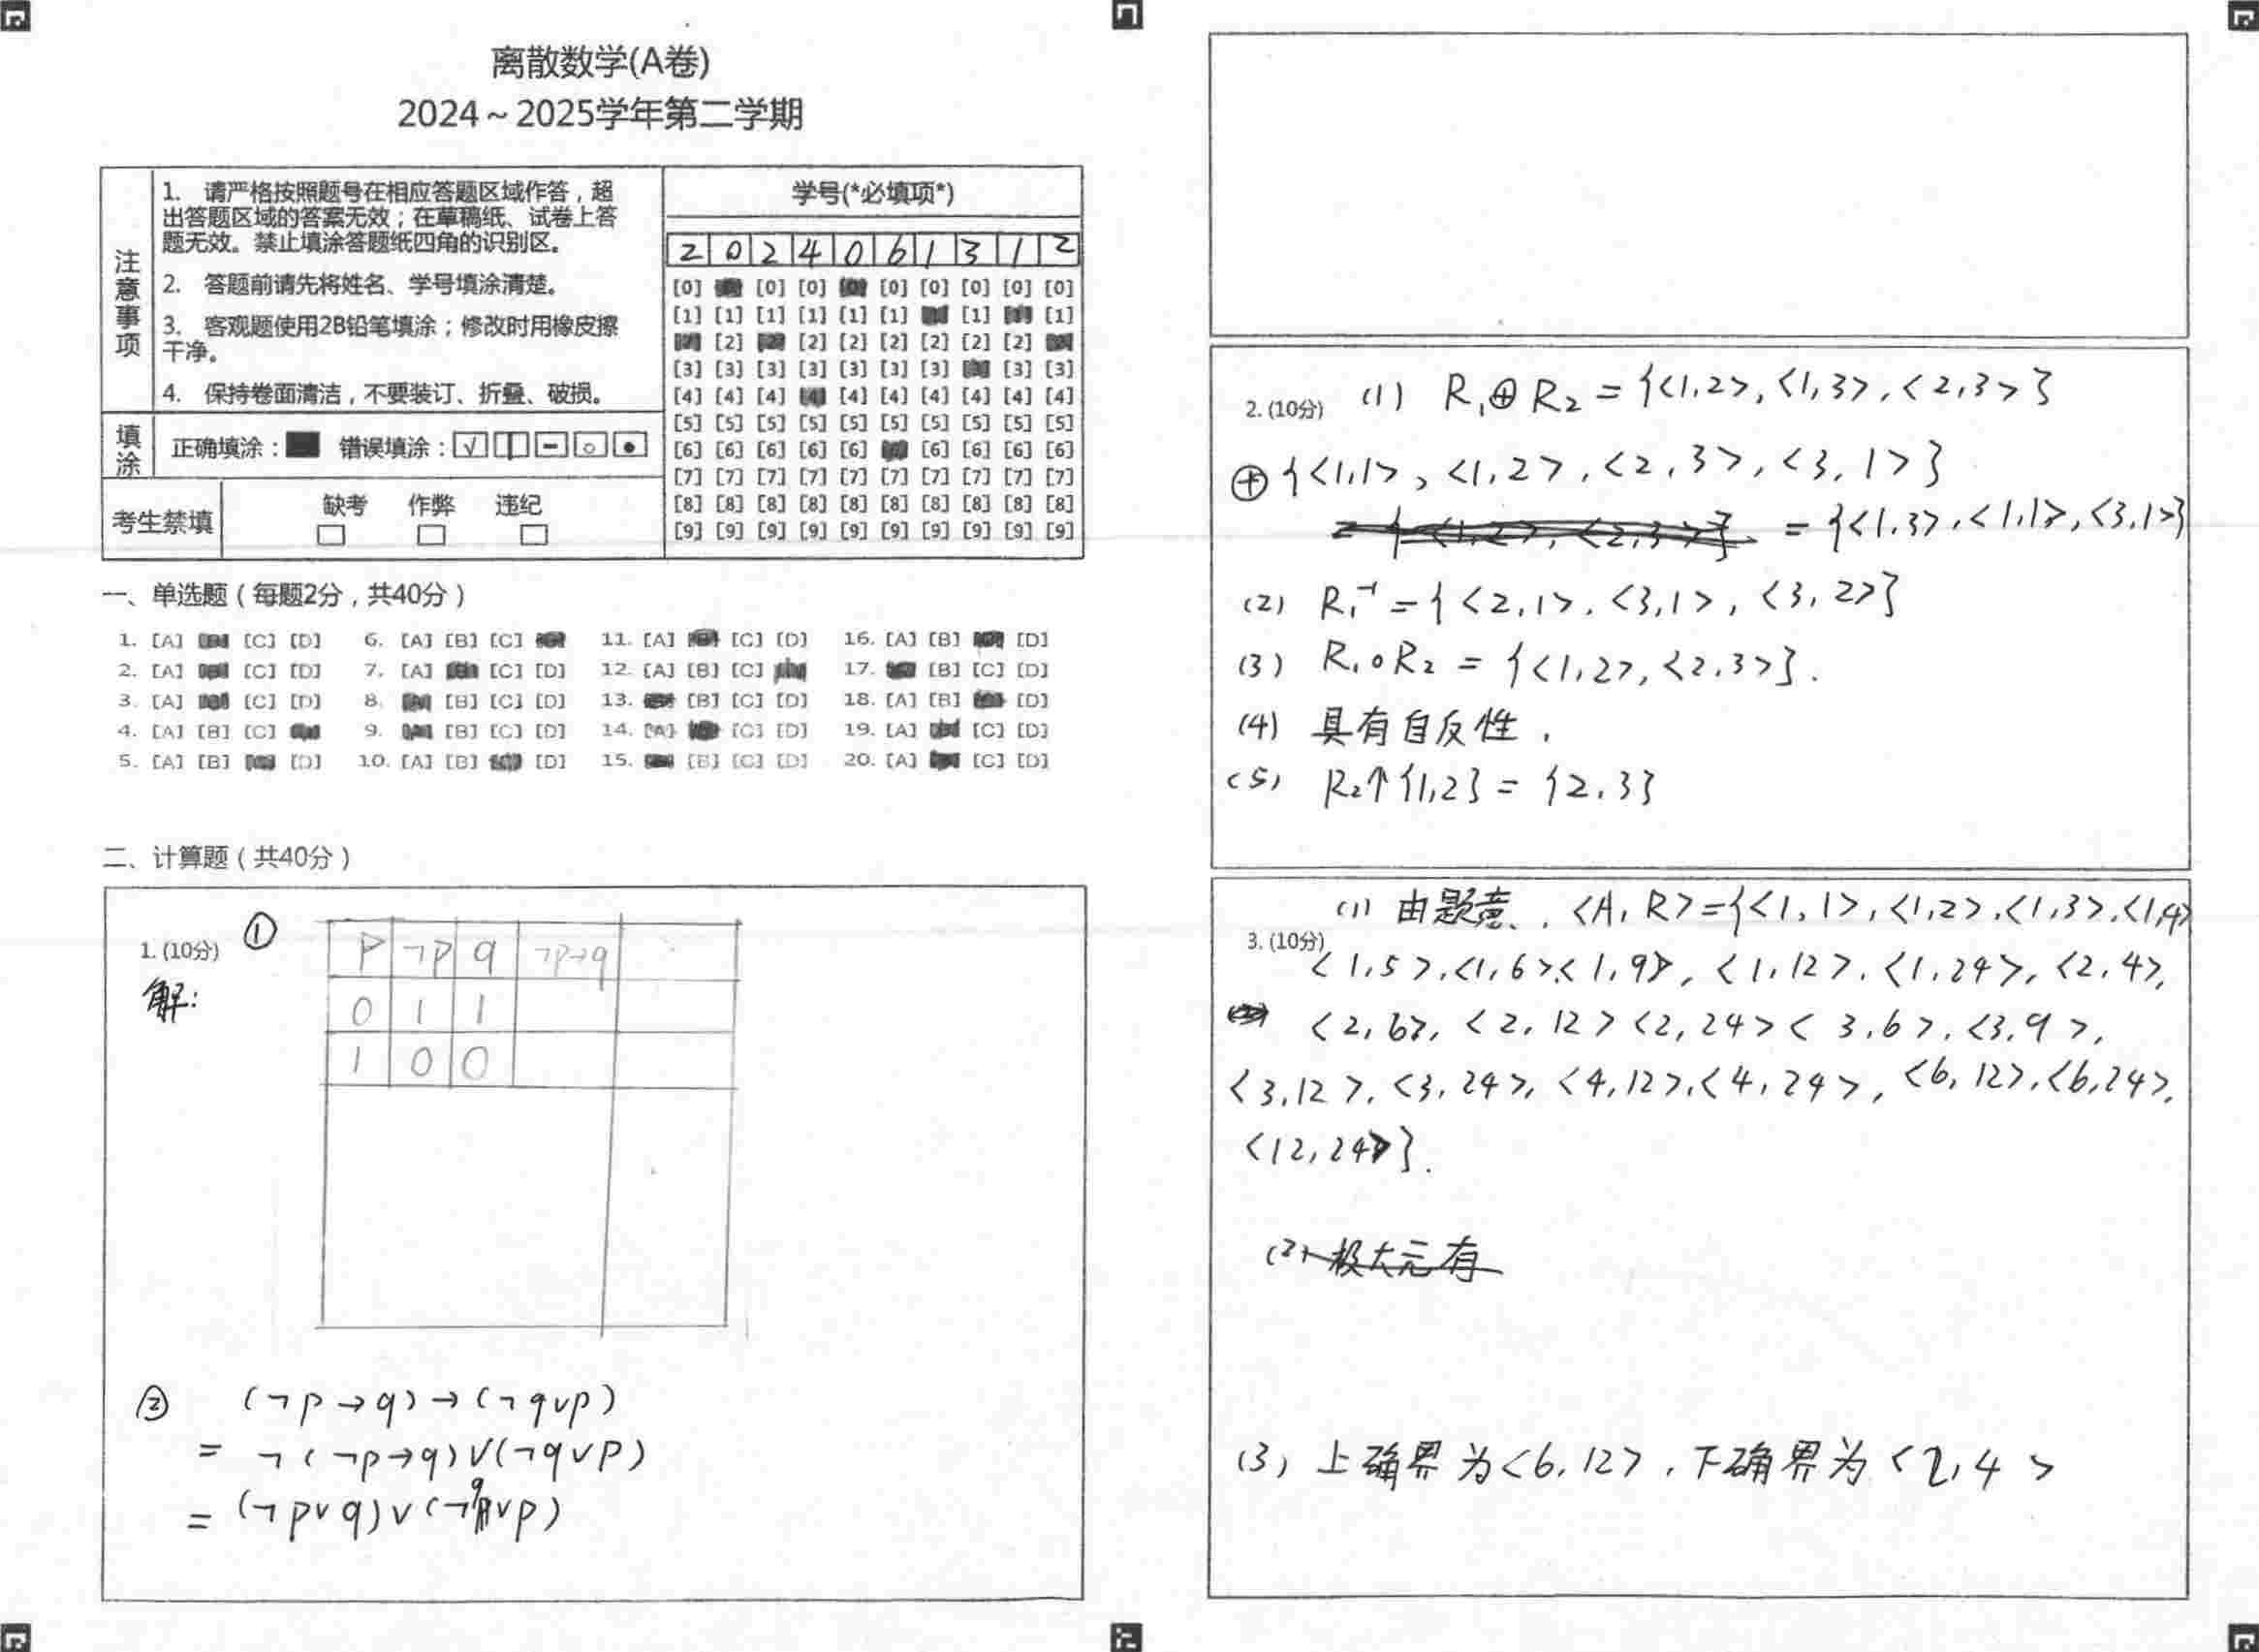 离散数学(A卷)
2024~2025学年第二学期
注意事项
1. 请严格按照题号在相应答题区域作答，超
出答题区域的答案无效；在草稿纸、试卷上答
题无效。禁止填涂答题纸四角的识别区。
2. 答题前请先将姓名、学号填涂清楚。
3. 客观题使用2B铅笔填涂；修改时用橡皮擦
干净。
4. 保持卷面清洁，不要装订、折叠、破损。
填涂
正确填涂： 错误填涂：
考生禁填
缺考 作弊 违纪
学号(*必填项*)
2 0 2 4 0 6 1 3 1 2
[0] [0] [0] [0] [0] [0] [0] [0]
[1] [1] [1] [1] [1] [1] [1] [1]
[2] [2] [2] [2] [2] [2] [2]
[3] [3] [3] [3] [3] [3] [3] [3] [3]
[4] [4] [4] [4] [4] [4] [4] [4] [4]
[5] [5] [5] [5] [5] [5] [5] [5] [5] [5]
[6] [6] [6] [6] [6] [6] [6] [6] [6]
[7] [7] [7] [7] [7] [7] [7] [7] [7] [7]
[8] [8] [8] [8] [8] [8] [8] [8] [8] [8]
[9] [9] [9] [9] [9] [9] [9] [9] [9] [9]
一、单选题（每题2分，共40分）
1. [A] [C] [D] 6. [A] [B] [C] 11. [A] [C] [D] 16. [A] [B] [D]
2. [A] [C] [D] 7. [A] [C] [D] 12. [A] [B] [C] 17. [B] [C] [D]
3. [A] [C] [D] 8. [B] [C] [D] 13. [B] [C] [D] 18. [A] [B] [D]
4. [A] [B] [C] 9. [B] [C] [D] 14. [A] [C] [D] 19. [A] [C] [D]
5. [A] [B] [D] 10. [A] [B] [D] 15. [B] [C] [D] 20. [A] [C] [D]
二、计算题（共40分）
1. (10分) ①
解:
P ¬P q ¬p→q
0 1 1
1 0 0
② (¬p→q)→(¬q∨p)
= ¬(¬p→q)∨(¬q∨p)
= (¬p∨q)∨(¬q∨p)
2. (10分) (1) R₁⊕R₂={<1,2>,<1,3>,<2,3>}
⊕{<1,1>,<1,2>,<2,3>,<3,1>}
={<1,3>,<1,1>,<3,1>}
(2) R₁⁻¹={<2,1>,<3,1>,<3,2>}
(3) R₁∘R₂={<1,2>,<2,3>}.
(4) 具有自反性.
(5) R₂↑{1,2}={2,3}
(1) 由题意,<A,R>={<1,1>,<1,2>,<1,3>,<1,4>
3. (10分)
<1,5>,<1,6>,<1,9>,<1,12>,<1,24>,<2,4>,
<2,6>,<2,12><2,24><3,6>,<3,9>,
<3,12>,<3,24>,<4,12>,<4,24>,<6,12>,<6,24>,
<12,24>}.
(2) 极大元有
(3) 上确界为<6,12>,下确界为<2,4>